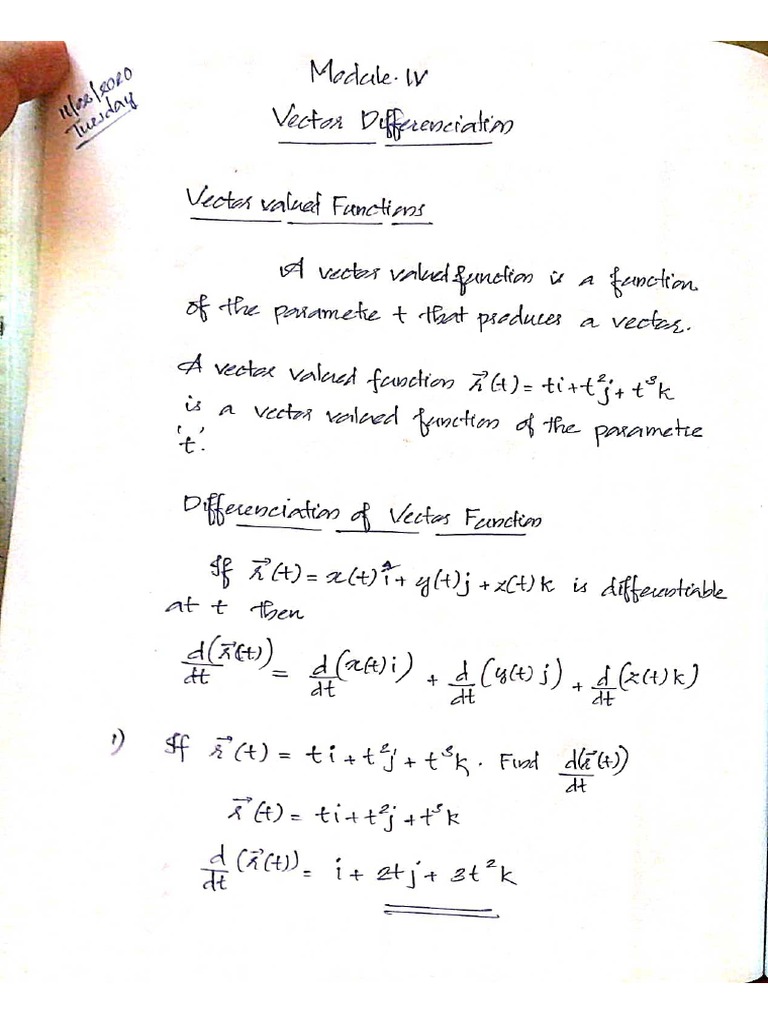 Module. IV
11/08/2020
Tuesday
Vector Differenciation
Vector valued Functions
A vector valued function is a function
of the parametre t that produces a vector.
A vector valued function r⃗(t) = ti + t²j + t³k
is a vector valued function of the parametre
't'.
Differenciation of Vector Function
If r⃗(t) = x(t)î + y(t)j + z(t)k is differentiable
at t then
d(r⃗(t))/dt = d/dt (x(t)i) + d/dt (y(t)j) + d/dt (z(t)k)
1) If r⃗(t) = ti + t²j + t³k. Find d(r⃗(t))/dt
r⃗(t) = ti + t²j + t³k
d/dt (r⃗(t)) = i + 2tj + 3t²k